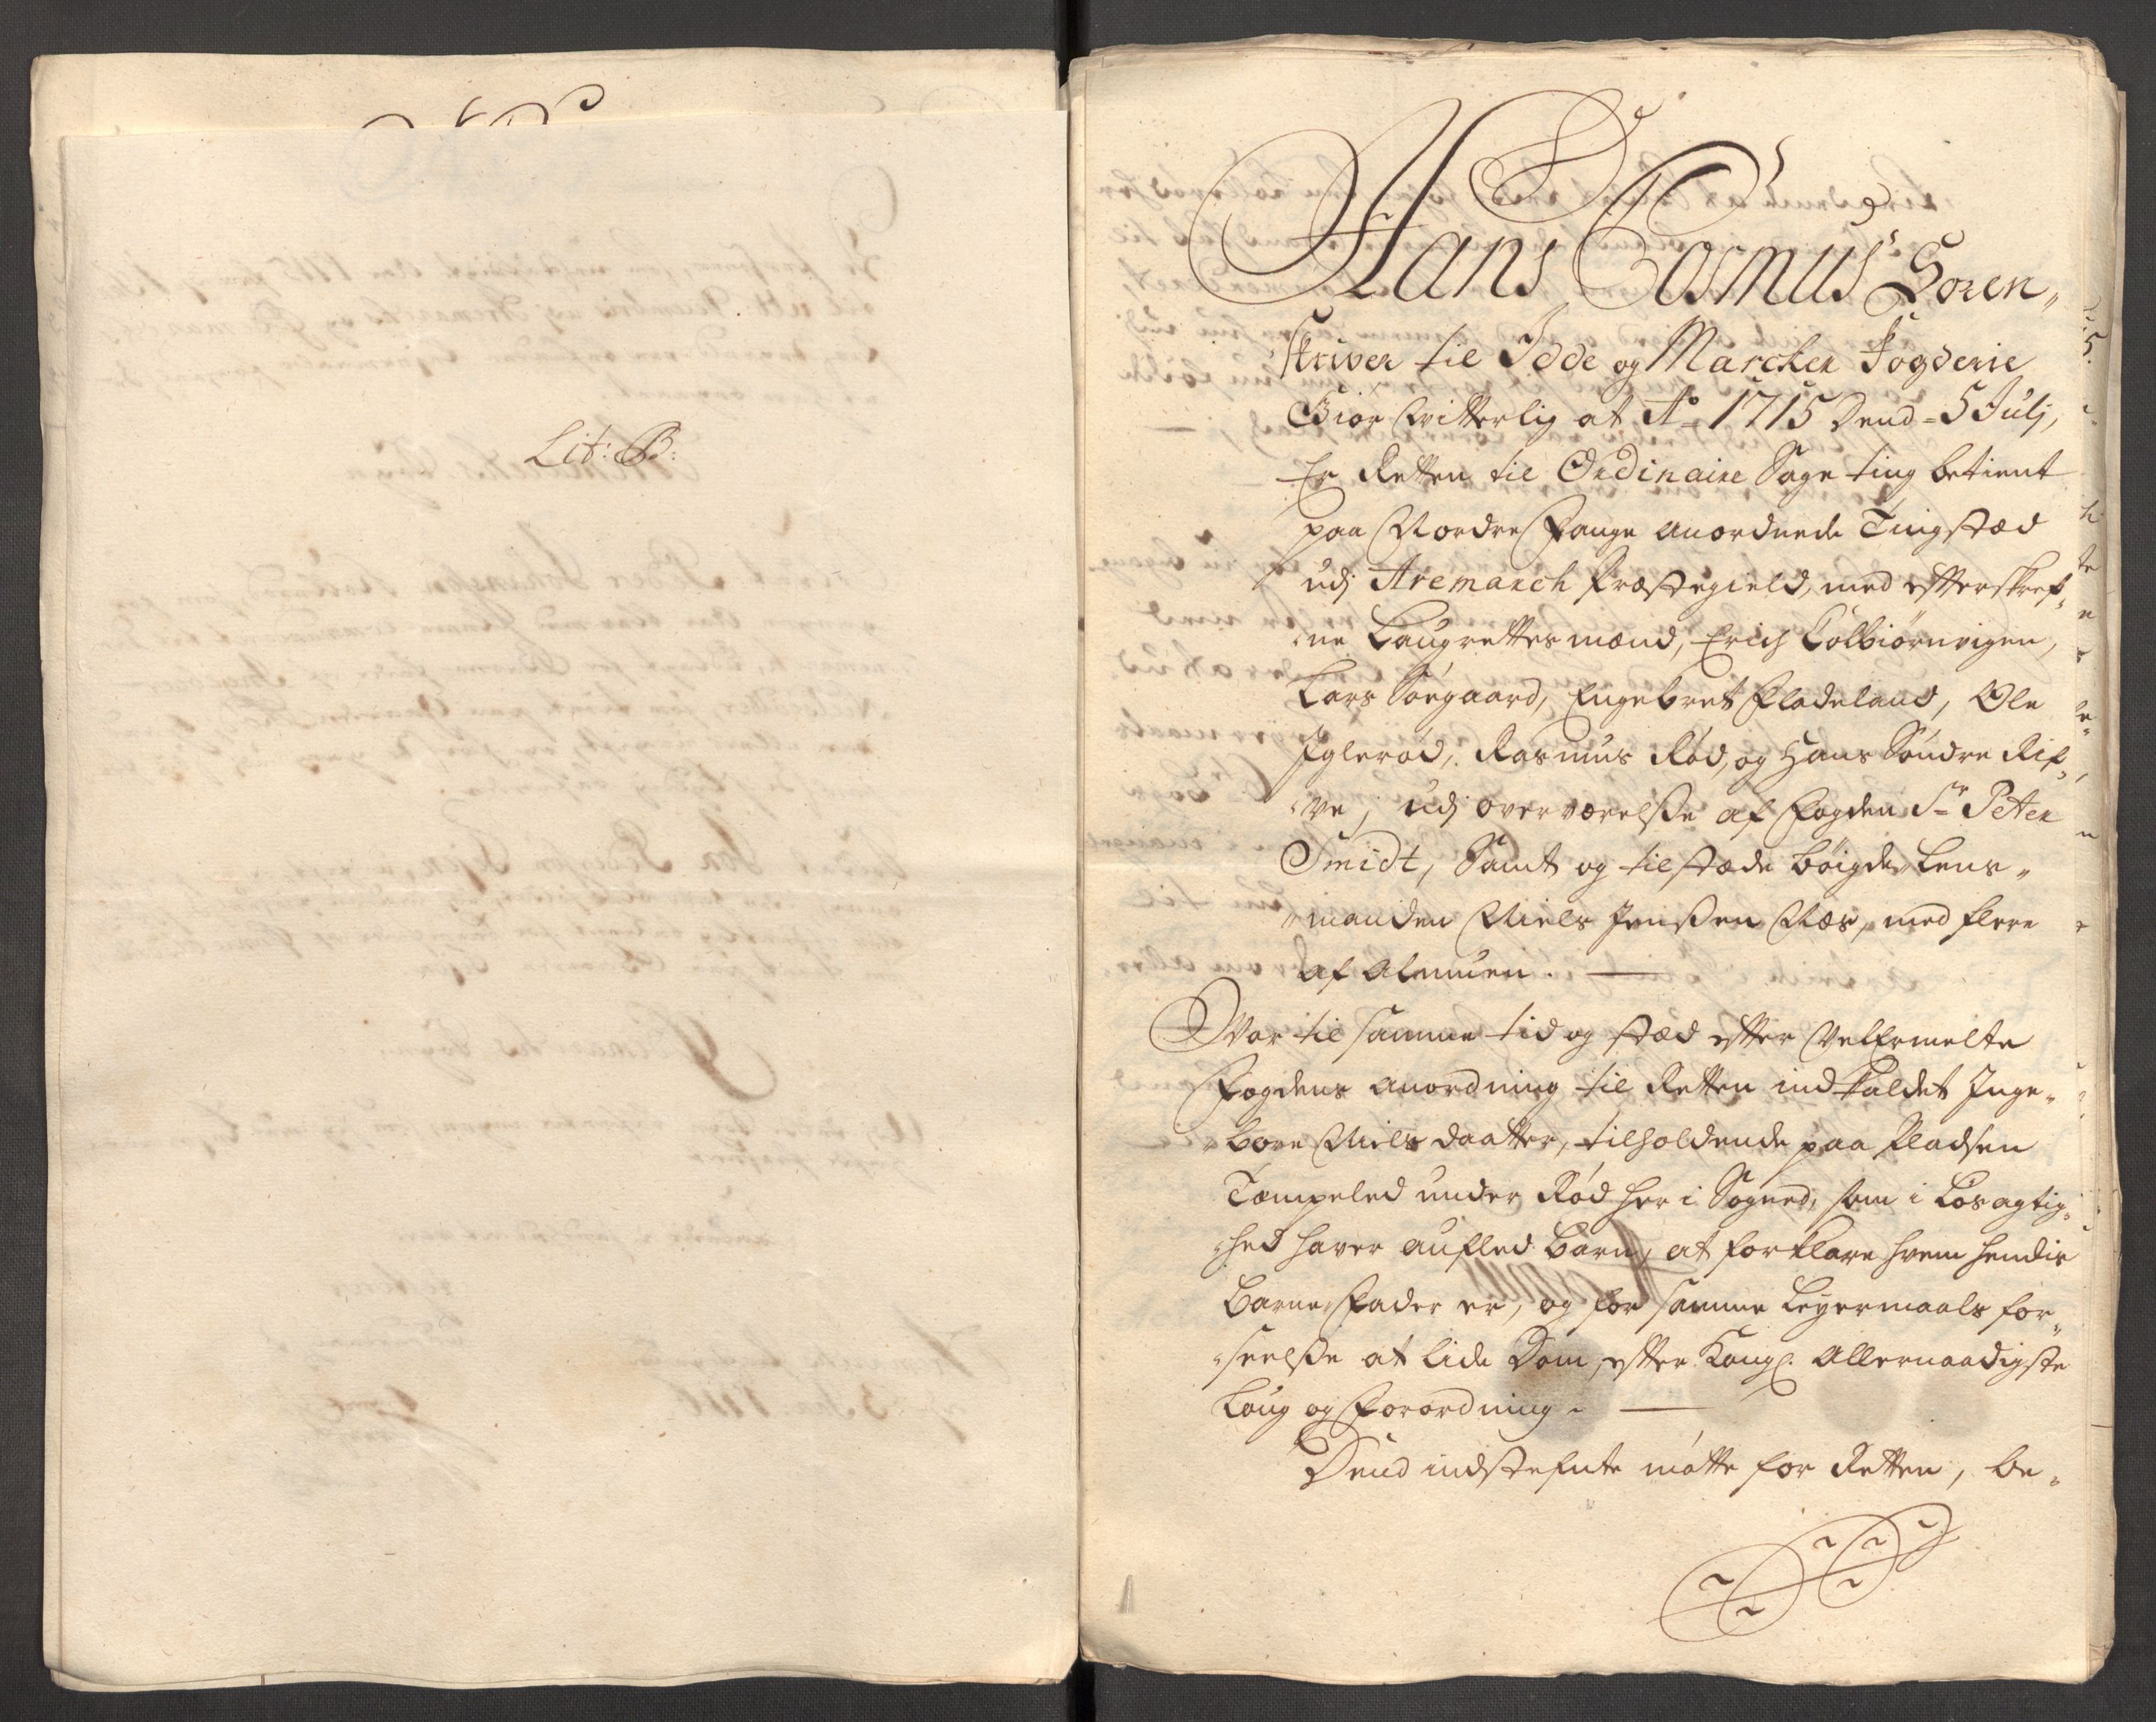 Lit: B:
Hans Cosmus Soren„
skriver til Idde og Marcker Fogderie
Giør Witterlig at A° 1715 Dend 5 Julij,
Er Retten til Ordinaire Sage ting betient
paa Nordre Fange anordnede Tingstæd
udj Aremarch Præstegield, med efterskref„
„ne Laugrettes mænd, Erich Colbiørnvigen,
Lars Søegaard, Engebret Fladeland, Ole
Iglerød, Rasmus Rød, og Hans Søndre Rif„
„ve, udj overværelsse af Fogden Sr Peter
Smidt, Samt og tilstæde bøigde Lens„
„manden Niels Jenssen Næs, med flere
af Almuen.
War til samme tid og stæd efter Velermelte
Fogdens anordning til Retten indkaldet Inge„
„bore Niels daatter, tilholdende paa Pladsen
Tæmpeled under Rød her i Sogned, som i Løsagtig„
„hed haver aufled barn, at forklare hvem hendis
barne Fader er, og for samme Leyermaals for„
„seelsse at lide Dom efter Kongl. Allernaadigste
Loug og Forordning.
Dend indstefnte møtte for Retten, be„